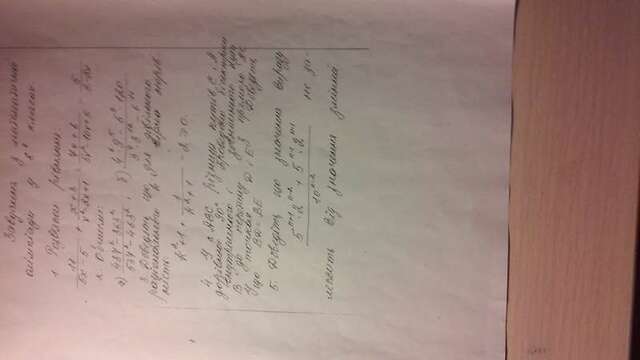 Завдання з математичної
олімпіади у 8 класах.
1. Розвязати рівняння:
11/(5x-5) + (x+3)/(x²-2x+1) = (7x+6)/(5x²-10x+5) - 5/
2. Обчисли:
а) (437²-363²)/(537²-463²); б)
3. Доведіть що, для довільного
раціонального k вірна нерів-
ність:
k²+1 + 1/(k²+1) - 2 ≥ 0.
4. У △ABC різниця кутів C і A
дорівнює 90°. Проведено бісектриси
внутрішнього і зовнішнього кута
B до перетину з прямою AC
у точках D і E. Доведіть
що BD=BE
5. Доведіть що значення виразу
не за-
лежить від значення змінної